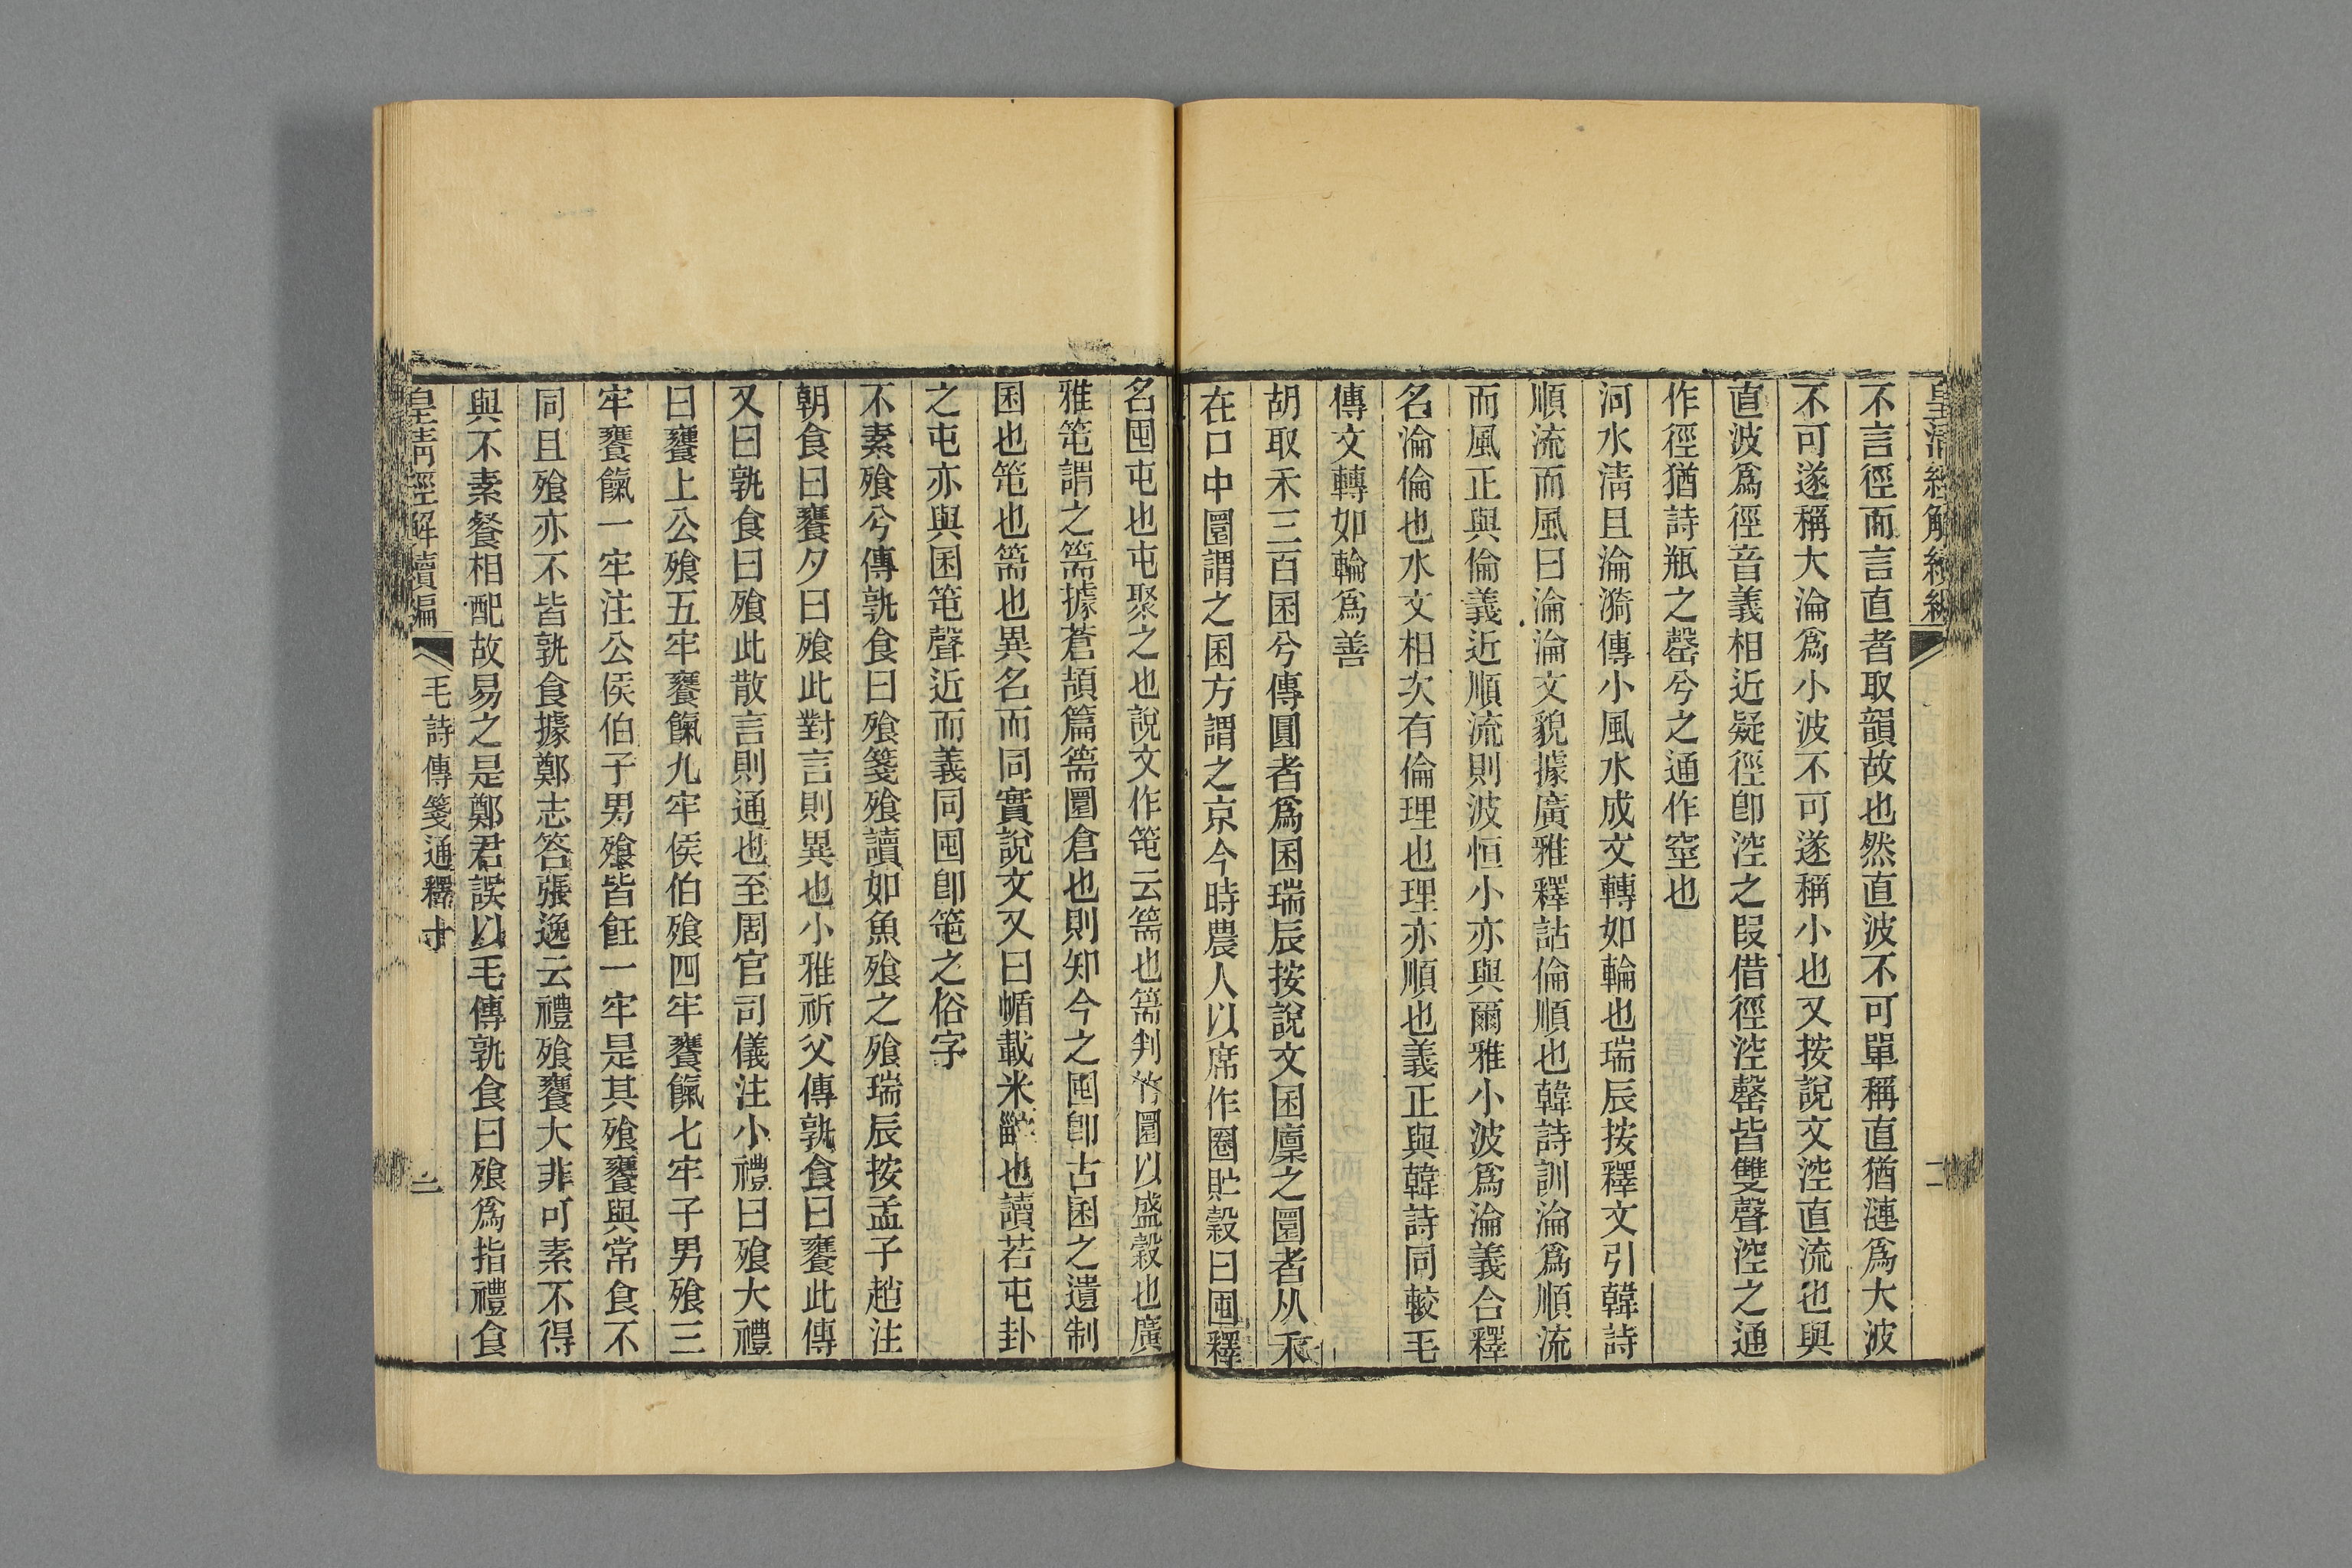 皇清經解續編
二
不言徑而言直者取韻故也然直波不可單稱直猶漣爲大波
不可遂稱大淪爲小波不可遂稱小也又按說文涇直流也與
直波爲徑音義相近疑徑卽涇之叚借徑涇罄皆雙聲涇之通
作徑猶詩瓶之罄兮之通作窒也
河水淸且淪漪傳小風水成文轉如輪也瑞辰按釋文引韓詩
順流而風曰淪淪文貌據廣雅釋詁倫順也韓詩訓淪爲順流
而風正與倫義近順流則波恒小亦與爾雅小波爲淪義合釋
名淪倫也水文相次有倫理也理亦順也義正與韓詩同較毛
傳文轉如輪爲善
胡取禾三百囷兮傳圓者爲囷瑞辰按說文囷廩之圜者从禾
在口中圜謂之囷方謂之京今時農人以席作圈貯穀曰囤釋
名囤屯也屯聚之也說文作笹云篅也篅判竹圜以盛穀也廣
雅笹謂之篅據蒼頡篇篅圜倉也則知今之囤卽古囷之遺制
囷也笹也篅也異名而同實說文又曰㡒載米𤲟也讀若屯卦
之屯亦與囷笹聲近而義同囤卽笹之俗字
不素飧兮傳孰食曰飧箋飧讀如魚飧之飧瑞辰按孟子趙注
朝食曰饔夕曰飧此對言則異也小雅祈父傳孰食曰饔此傳
又曰孰食曰飧此散言則通也至周官司儀注小禮曰飧大禮
曰饔上公飧五牢饔餼九牢侯伯飧四牢饔餼七牢子男飧三
牢饔餼一牢注公侯伯子男飧皆飪一牢是其飧饔與常食不
同且飧亦不皆孰食據鄭志答張逸云禮飧饔大非可素不得
與不素餐相配故易之是鄭君誤以毛傳孰食曰飧爲指禮食
皇淸經解續編
毛詩傳箋通釋十
三